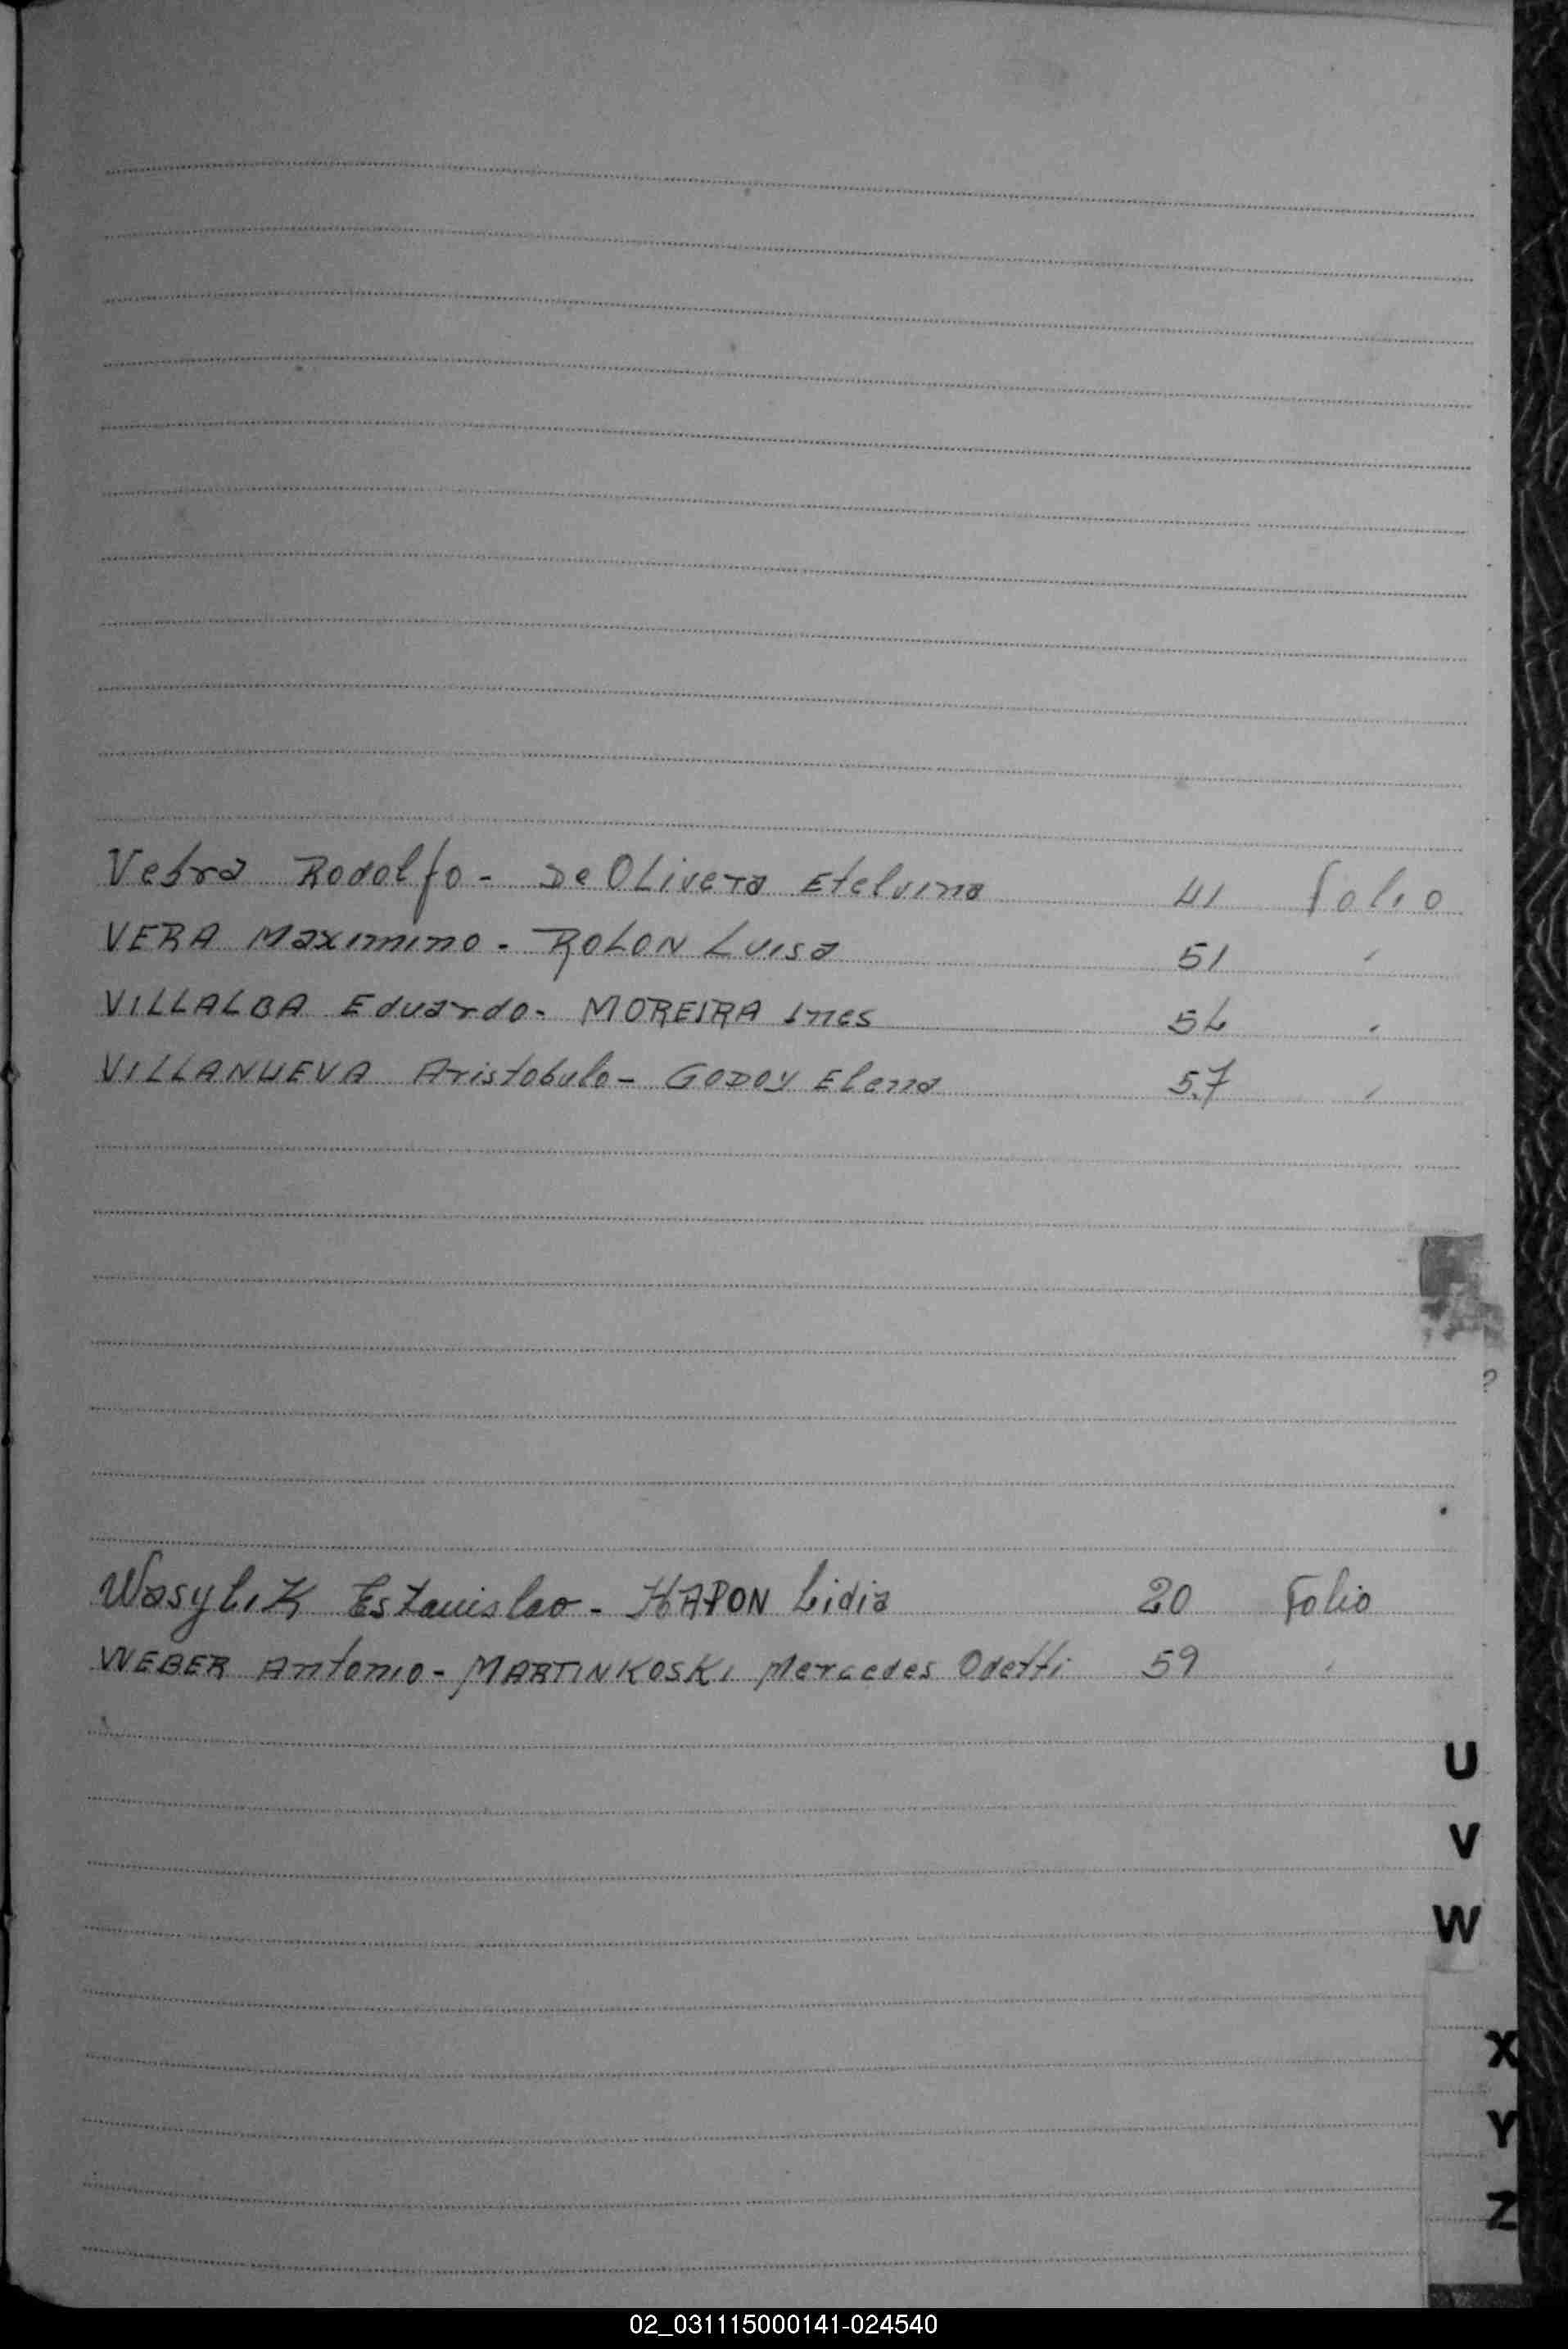 Vebra Rodolfo - De OLivera Etelvina 41 folio
VERA Maximino - ROLON Luisa 51 "
VILLALBA Eduardo - MOREIRA Ines 54 "
VILLANUEVA Aristobulo - GODOY Elena 57 "
?
Wasylik Estanislao - HAPON Lidia 20 Folio
WEBER Antonio - MARTINKOSKI Mercedes Odetti 59 "
U
V
W
X
Y
Z
02_031115000141-024540